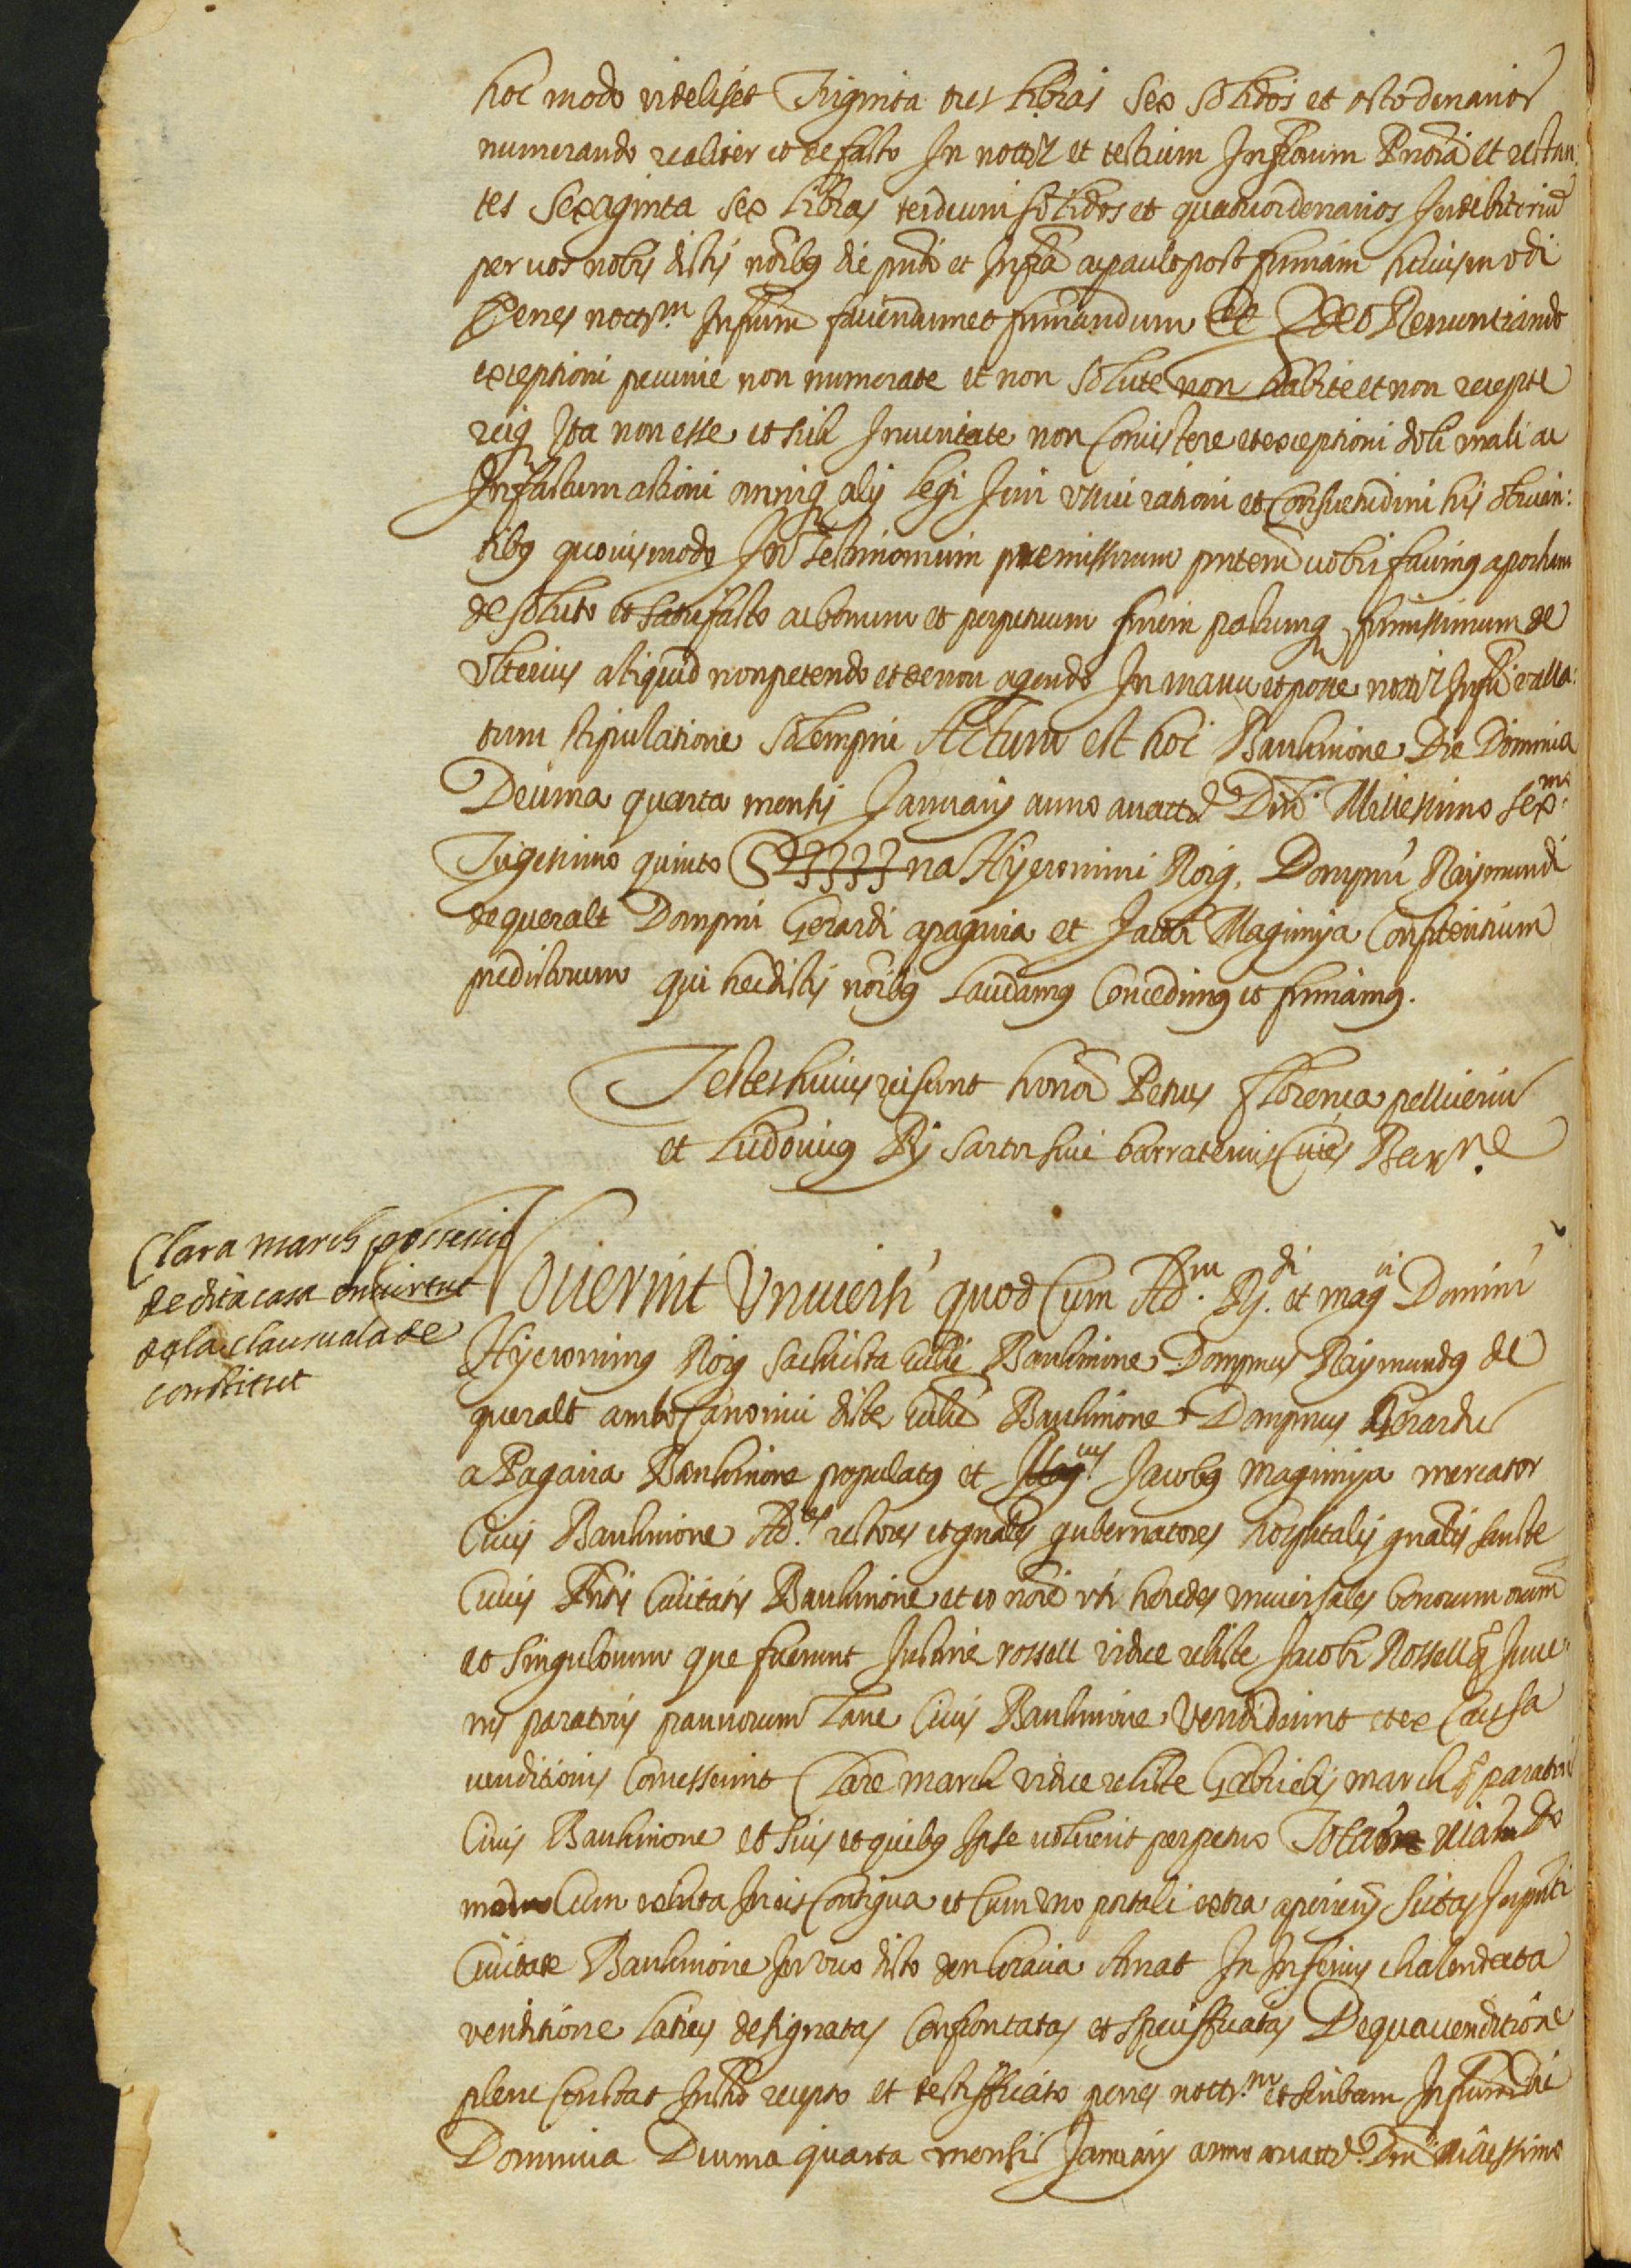 hoc modo videliset Triginta tres libras sex solidos et octo denarios
numerando realiter et de facto In nottrii et testium Infrorum Pntia et restan:
tes sexaginta sex libras terdecim solidos et quatuor denarios In debitorium
per vos nobis dictis noibus die pnti et Infra ac paulo post firmam huiusmodi
Penes nottm Infrum faciendum et firmandum Et Ideo Renuntiando
exceptioni pecunie non numerate et non solute non habite et non recepte
reiq Ita non esse et sich In veritate non Concistere et exceptioni doli mali ac
In factum actioni omniq alij legi Iuri usui rationi et Consuetudini his obvian:
tibus quovismodo In Testimonium premissorum pntem vobis facimus apocham
de soluto et satisfacto ac bonum et perpetuum finem pactumq firmissimum de
ulterius aliquid non petendo et de non agendo In manu et posse nottrii Infri valla:
tum stipulatione solempni Actum est hoc Barchinone Die Dominica
Decima quarta mensis Januarij anno a natte Dni Millessimo sexmo
Trigesimo quinto S////na Hyeronimi Roig, Dompni Raymundi
de queralt Dompni Gerardi apaguera et Jacobi Maginya Confitentium
predictorum qui hec dictis noibus Laudamus Concedimus et firmamus.
Testes huius rei sunt honor Petrus Florença pellicerius
et Ludovicus Rj sartor sive barraterius Cives Barne
Clara march possessio
de dita casa en virtut
de la clausula de
constitut
Noverint Universi quod Cum Adm Rdi et magci Domini
Hyeronimus Roig sachrista eccle Barchinone Dompnus Raymundus de
queralt ambo Canonici dicte eccle Barchinone Dompnus Gerardus
a Paguera Barchinone populatus et Magcus Jacobus maginya mercator
Civis Barchinone Adres rectores et gnales gubernatores hospitalis gnalis sancte
Crucis Pntis Civitatis Barchinone et eo noie uti heredes universales bonorum oium
et singulorum que fuerunt Justine rossell vidue relicte Jacobi Rossell q Juve
nis paratoris pannorum Lane Civis Barchinone Vendiderint et ex Causa
venditionis Concesserint Clare march vidue relicte Gabrielis march q paratoris
Civis Barchinone et suis et quibus Ipse voluerit perpetuo
Cum exhita In eis Contigua et Cum uno portali extra aperiens sitas In pnti
Civitate Barchinone In vico dicto den Arnat In Inferius chalendata
venditione latius designatas Confrontatas et specifficatas De qua venditione
plene Constat Instro recepto et testifficato penes nottm et scribam Infrum die
Dominica Decima quarta mensis Januarij anno a natte Dni Millessimo